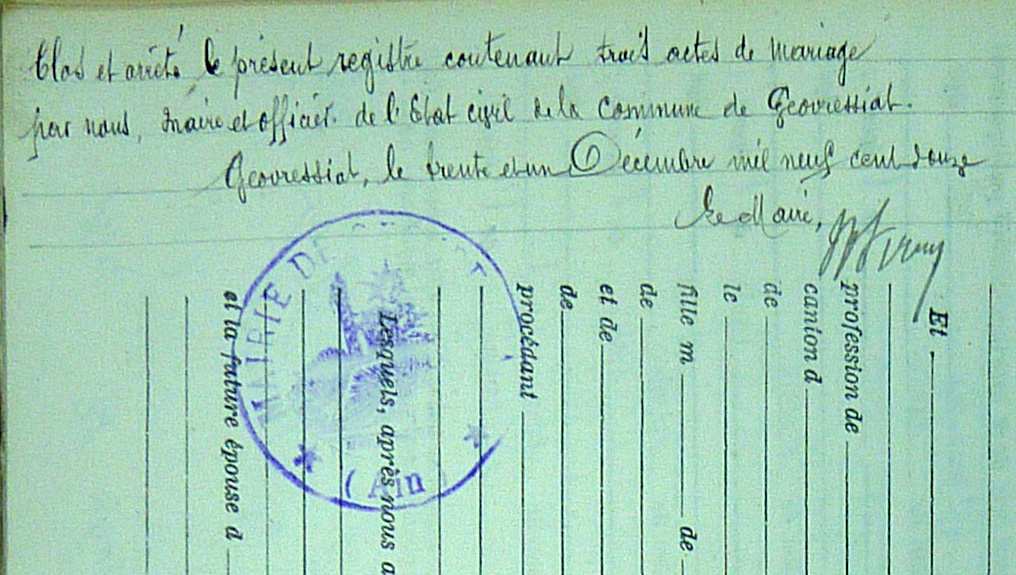 Clos et arrêté le présent registre contenant trois actes de mariage
par nous, Maire et officier de l'Etat civil de la Commune de Geovressiat.
Geovressiat, le trente et un Décembre mil neuf cent douze
Le Maire,
Et
profession de
canton d
de
le
fille m de
de
et de
de
procédant
Lesquels, après nous a
et la future épouse d
MAIRIE DE
(Ain)